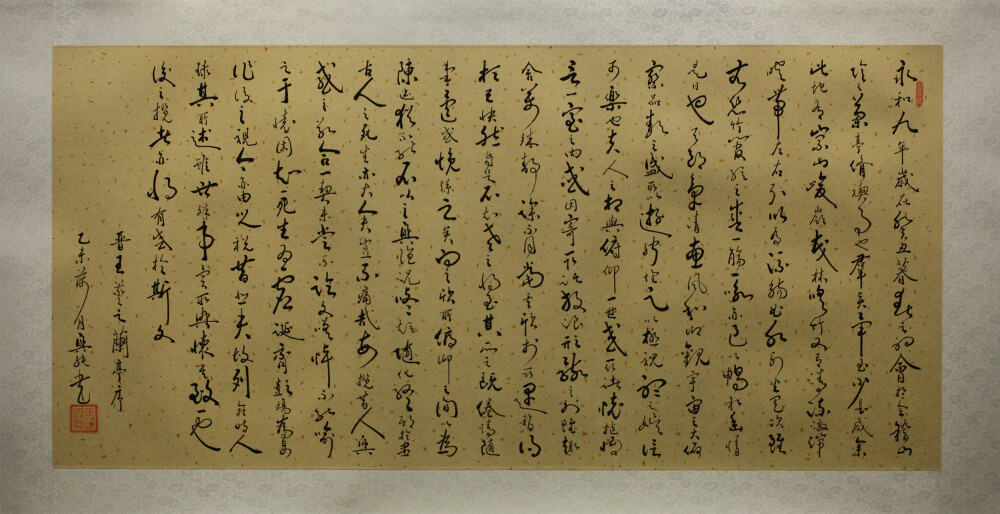 永和九年歲在癸丑暮春之初會於會稽山
陰之蘭亭脩禊事也羣賢畢至少長咸集
此地有崇山峻嶺茂林脩竹又有清流激湍
映帶左右引以為流觴曲水列坐其次雖
無絲竹管弦之盛一觴一詠亦足以暢敘幽情
是日也天朗氣清惠風和暢仰觀宇宙之大俯
察品類之盛所以遊目騁懷足以極視聽之娛信
可樂也夫人之相與俯仰一世或取諸懷抱悟
言一室之內或因寄所託放浪形骸之外雖趣
舍萬殊靜躁不同當其欣於所遇暫得
於己快然自足不知老之將至其所之既倦情隨
事遷感慨係之矣向之所欣俛仰之間以為
陳迹猶不能不以之興懷況修短隨化終期於盡
古人云死生亦大矣豈不痛哉每攬昔人興
感之由若合一契未嘗不臨文嗟悼不能喻
之于懷固知一死生為虛誕齊彭殤為妄
作後之視今亦由今之視昔悲夫故列敘時人
錄其所述雖世殊事異所以興懷其致一也
後之攬者亦將有感於斯文
晉王羲之蘭亭序
乙未 月 書